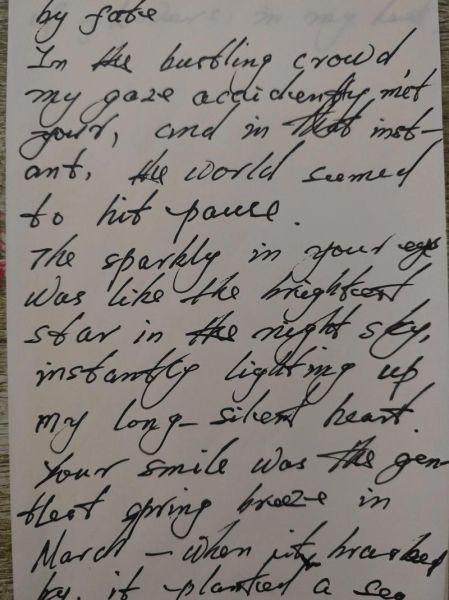 by fate
In the bustling crowd,
my gaze accidently met
your, and in that inst-
ant, the world seemed
to hit pause.
The sparkly in your eyes
was like the brightest
star in the night sky,
instantly lighting up
my long-silent heart.
Your smile was the gen-
tlest spring breeze in
March - when it brushed
by, it planted a see